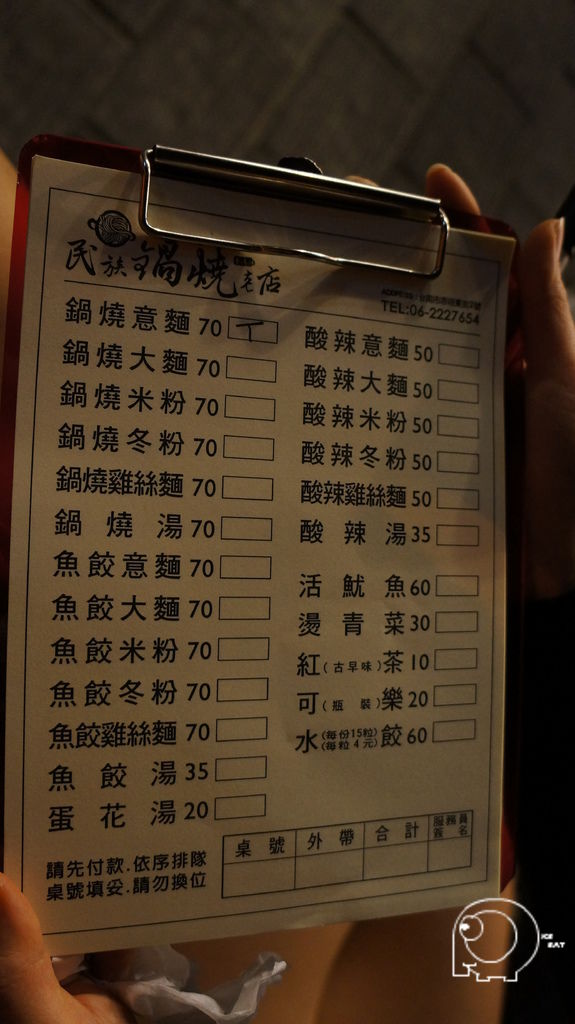 民族鍋燒老店
TEL:06-2227654
鍋燒意麵 70
鍋燒大麵 70
鍋燒米粉 70
鍋燒冬粉 70
鍋燒雞絲麵 70
鍋燒湯 70
魚餃意麵 70
魚餃大麵 70
魚餃米粉 70
魚餃冬粉 70
魚餃雞絲麵 70
魚餃湯 35
蛋花湯 20
酸辣意麵 50
酸辣大麵 50
酸辣米粉 50
酸辣冬粉 50
酸辣雞絲麵 50
酸辣湯 35
活魷魚 60
燙青菜 30
紅(古早味)茶 10
可(瓶裝)樂 20
水(每份15粒)(每粒4元)餃 60
請先付款.依序排隊
桌號填妥.請勿換位
桌號 外帶 合計 服務員簽名
ICE
EAT